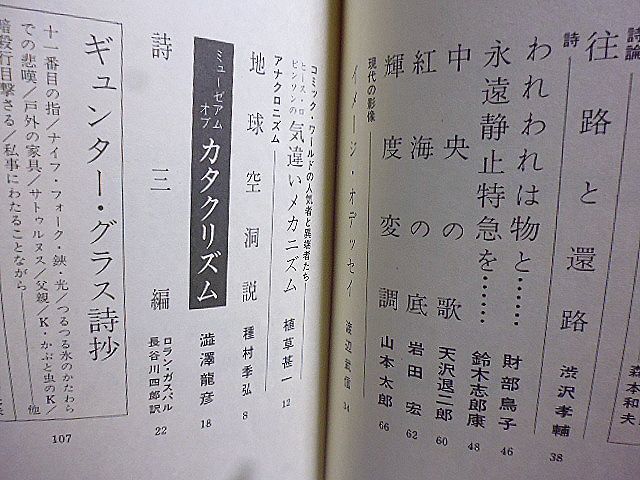 森本和夫
詩論
往路と還路 渋沢孝輔 38
詩
われわれは物と…… 財部鳥子 46
永遠静止特急を…… 鈴木志郎康 48
中央の歌 天沢退二郎 60
紅海の底 岩田宏 62
輝度変調 山本太郎 66
現代の影像
イメージ・オデッセイ 渡辺武信 34
コミック・ワールドの人気者と異端者たち
ヒース・ロビンソンの気違いメカニズム 植草甚一 12
アナクロニズム
地球空洞説 種村季弘 8
ミューゼアム オブ カタクリズム 澁澤龍彦 18
詩三編 ロラン・ガスパル 長谷川四郎訳 22
ギュンター・グラス詩抄
十一番目の指/ナイフ・フォーク・鋏・光/つるつる氷のかたわら
での悲嘆/戸外の家具/サトゥルヌス/父親/K・かぶと虫のK/
暗殺行目撃さる/私事にわたることながら 他
107